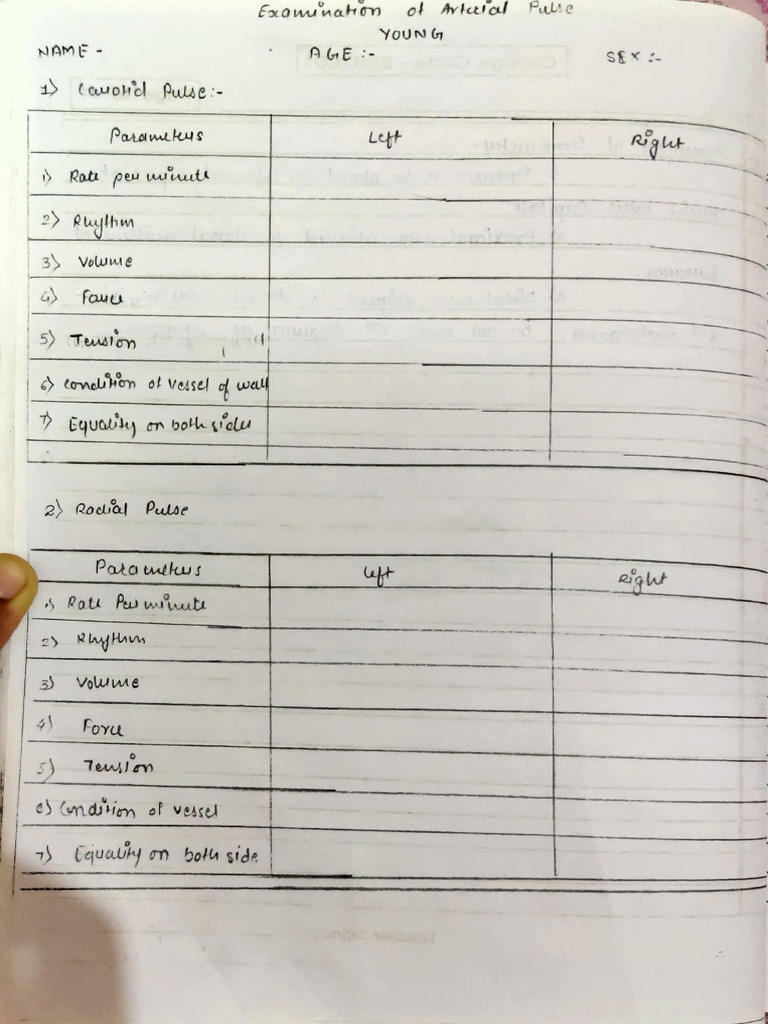 Examination of Arterial Pulse
YOUNG
NAME - AGE :- SEX :-
1) Carotid Pulse :-
Parameters Left Right
1) Rate per minute
2) Rhythm
3) Volume
4) Force
5) Tension
6) Condition of vessel of wall
7) Equality on both sides
2) Radial Pulse
Parameters Left Right
1) Rate Per minute
2) Rhythm
3) Volume
4) Force
5) Tension
6) Condition of vessel
7) Equality on both side